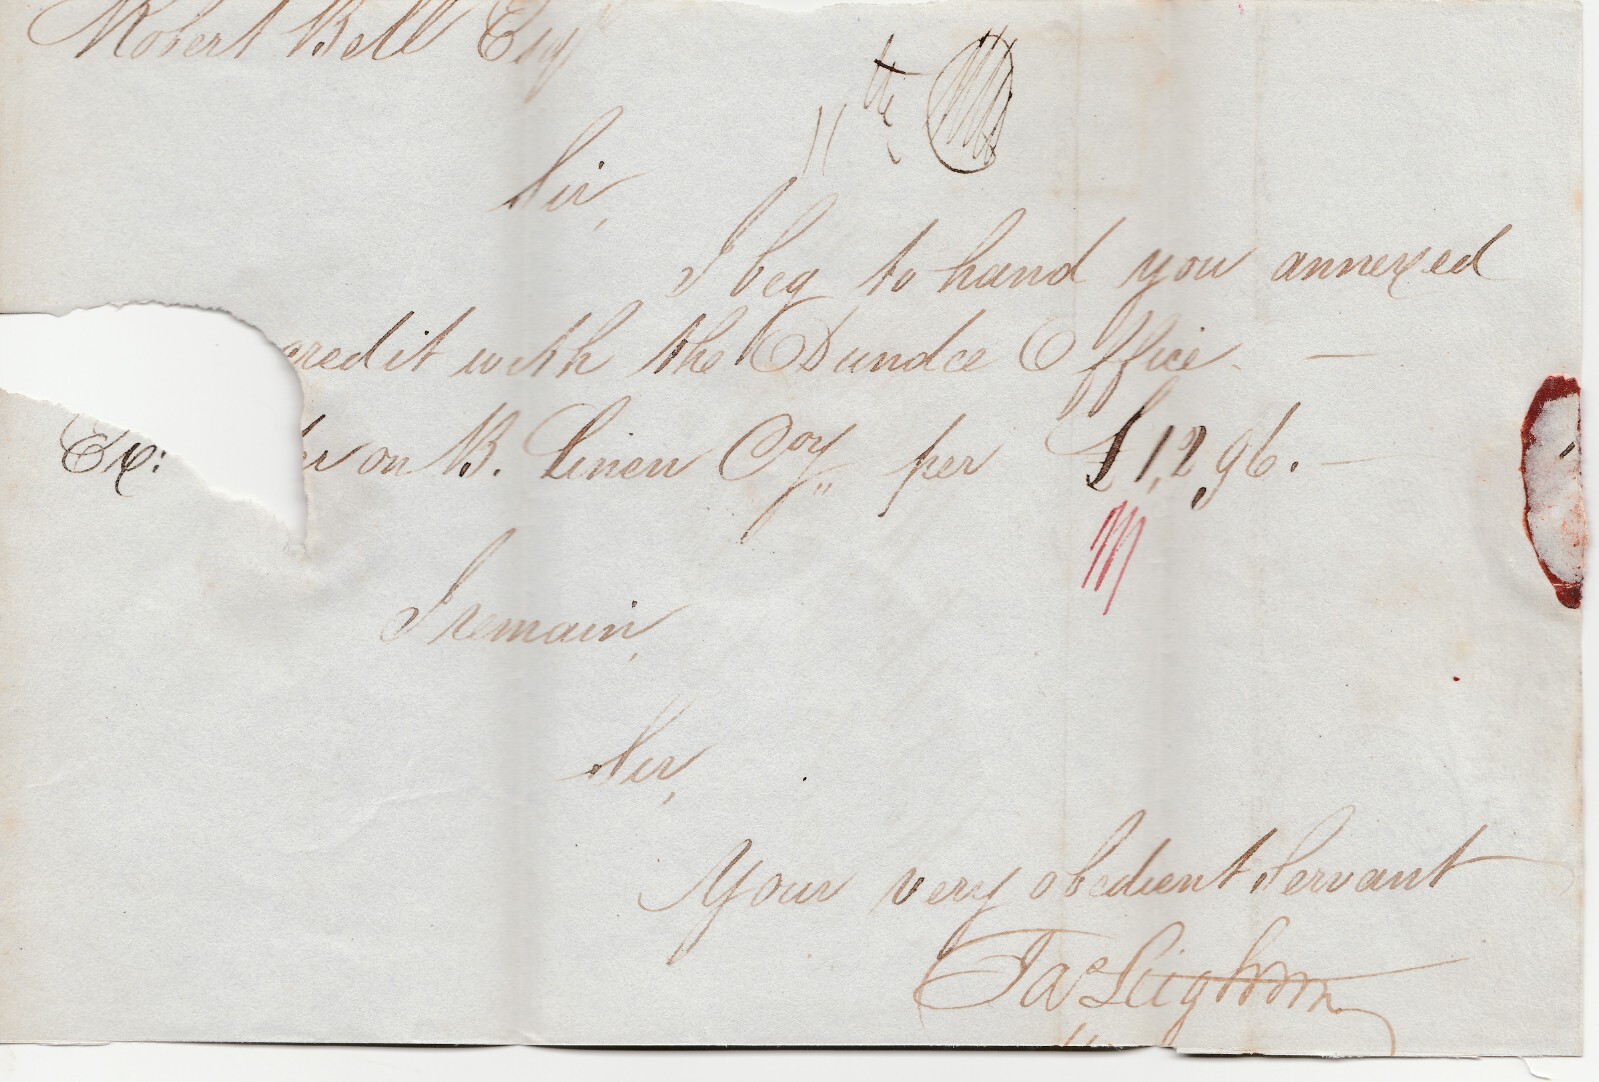 Robert Bell Esq
11th
Sir,
I beg to hand you annexed
credit with the Dundee Office. —
Ex: on B. Linen Coy,, per £1,296. —
I remain,
Sir,
Your very obedient Servant
Jas Leighton